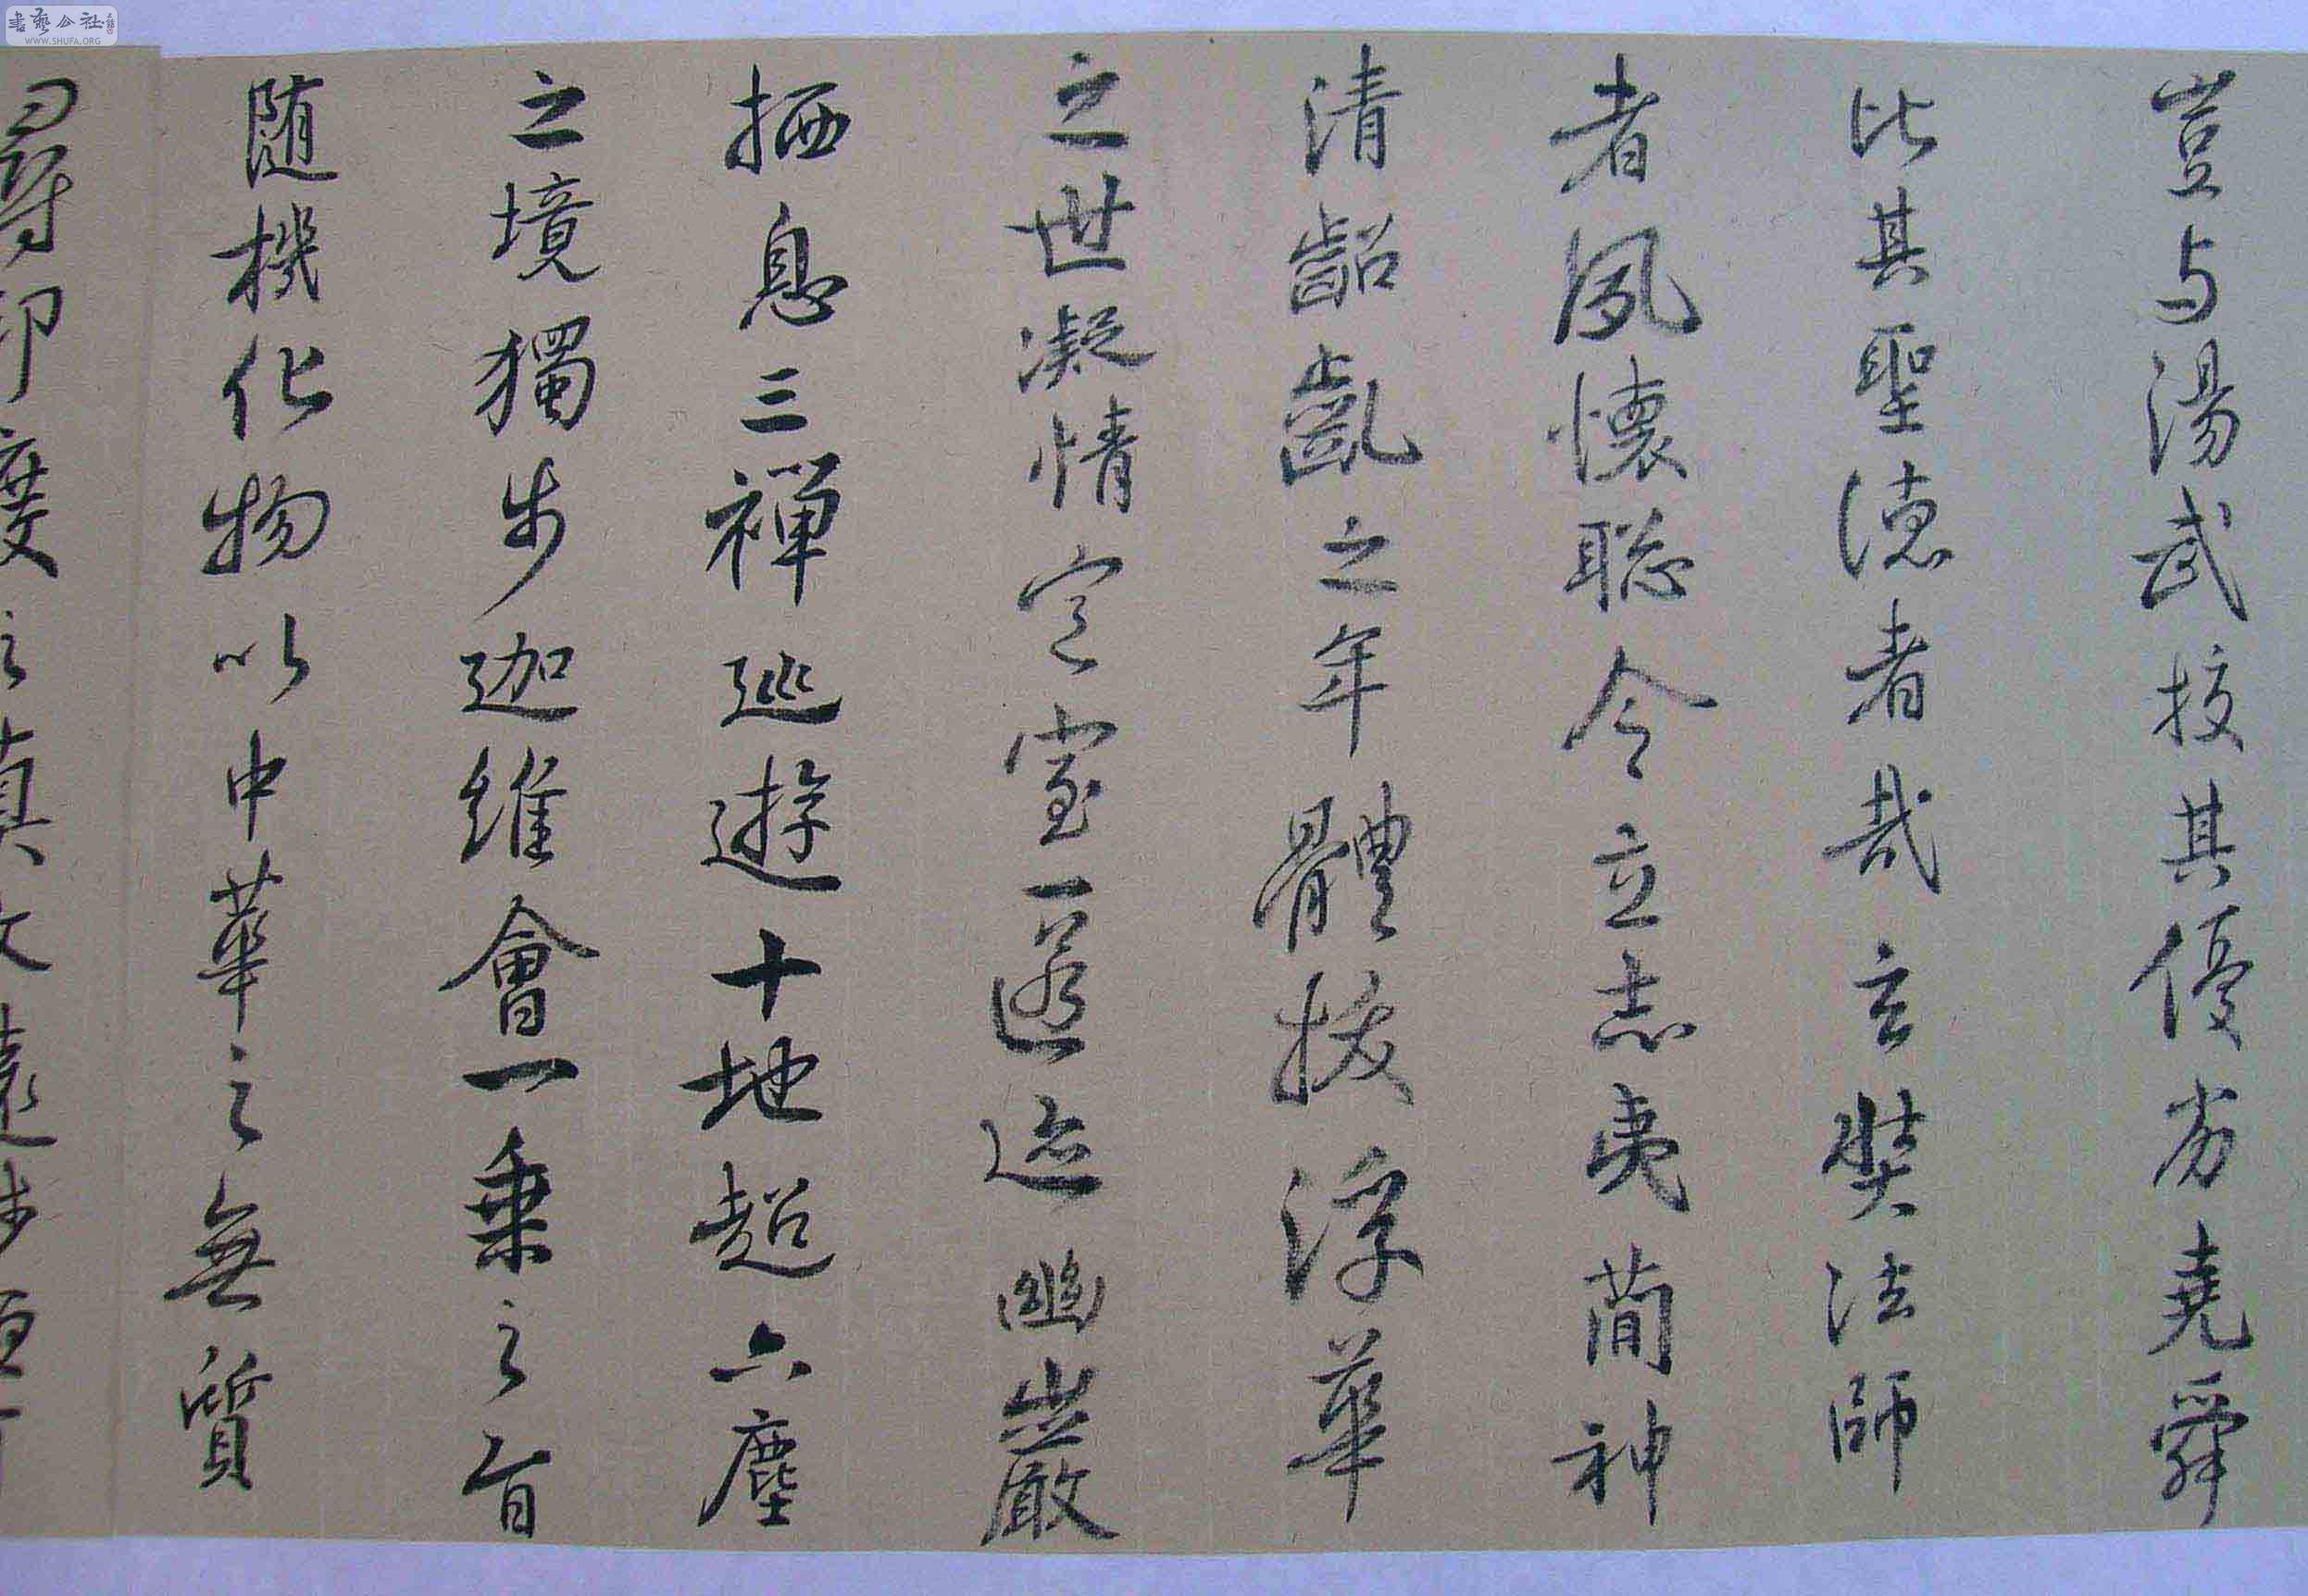 豈与湯武挍其優劣堯舜
比其聖德者哉玄奘法師
者夙懷聡令立志夷蕳神
清齠齔之年體拔浮華
之世凝情定室匿迹幽巖
栖息三禪巡遊十地超六塵
之境獨步迦維會一乗之旨
随機化物以中華之無質
尋印度之真文遠涉恒
書藝公社
WWW.SHUFA.ORG